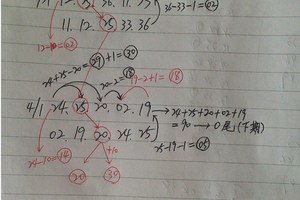 36-33-1=02
11. 12. 25 33. 36
12-10=02
24+25-20=29+1=30
20-2=18
19-2+1=18
4/1 24. 25. 20. 02. 19
02 19. 20. 24 25
→24+25+20+02+19
=90→0尾(下期)
25-19-1=05
24-10=14
+10
20 30